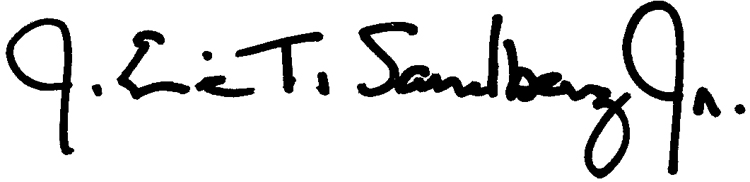 J. Eric T. Sandberg Jr.